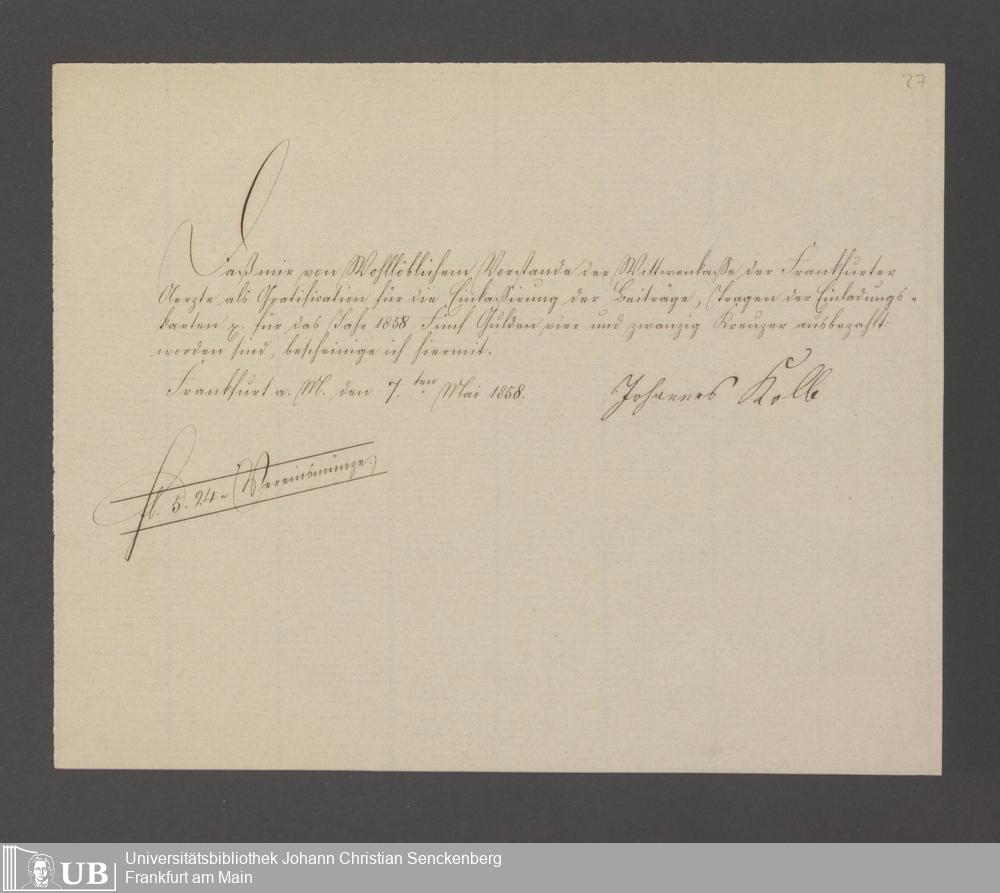 27
Daß mir von Wohllöblichem Vorstande der Wittwenkasse der Frankfurter
Aerzte als Gratification für die Einkassirung der Beiträge, Tragen der Einladungs-
karten p. für das Jahr 1858 Fünf Gulden vier und zwanzig Kreuzer ausbezahlt
worden sind, bescheinige ich hiermit.
Frankfurt a. M. den 7.ten Mai 1858. Johannes Kolb
fl. 5. 24 - (Vereinsmünze.)
UB Universitätsbibliothek Johann Christian Senckenberg
Frankfurt am Main